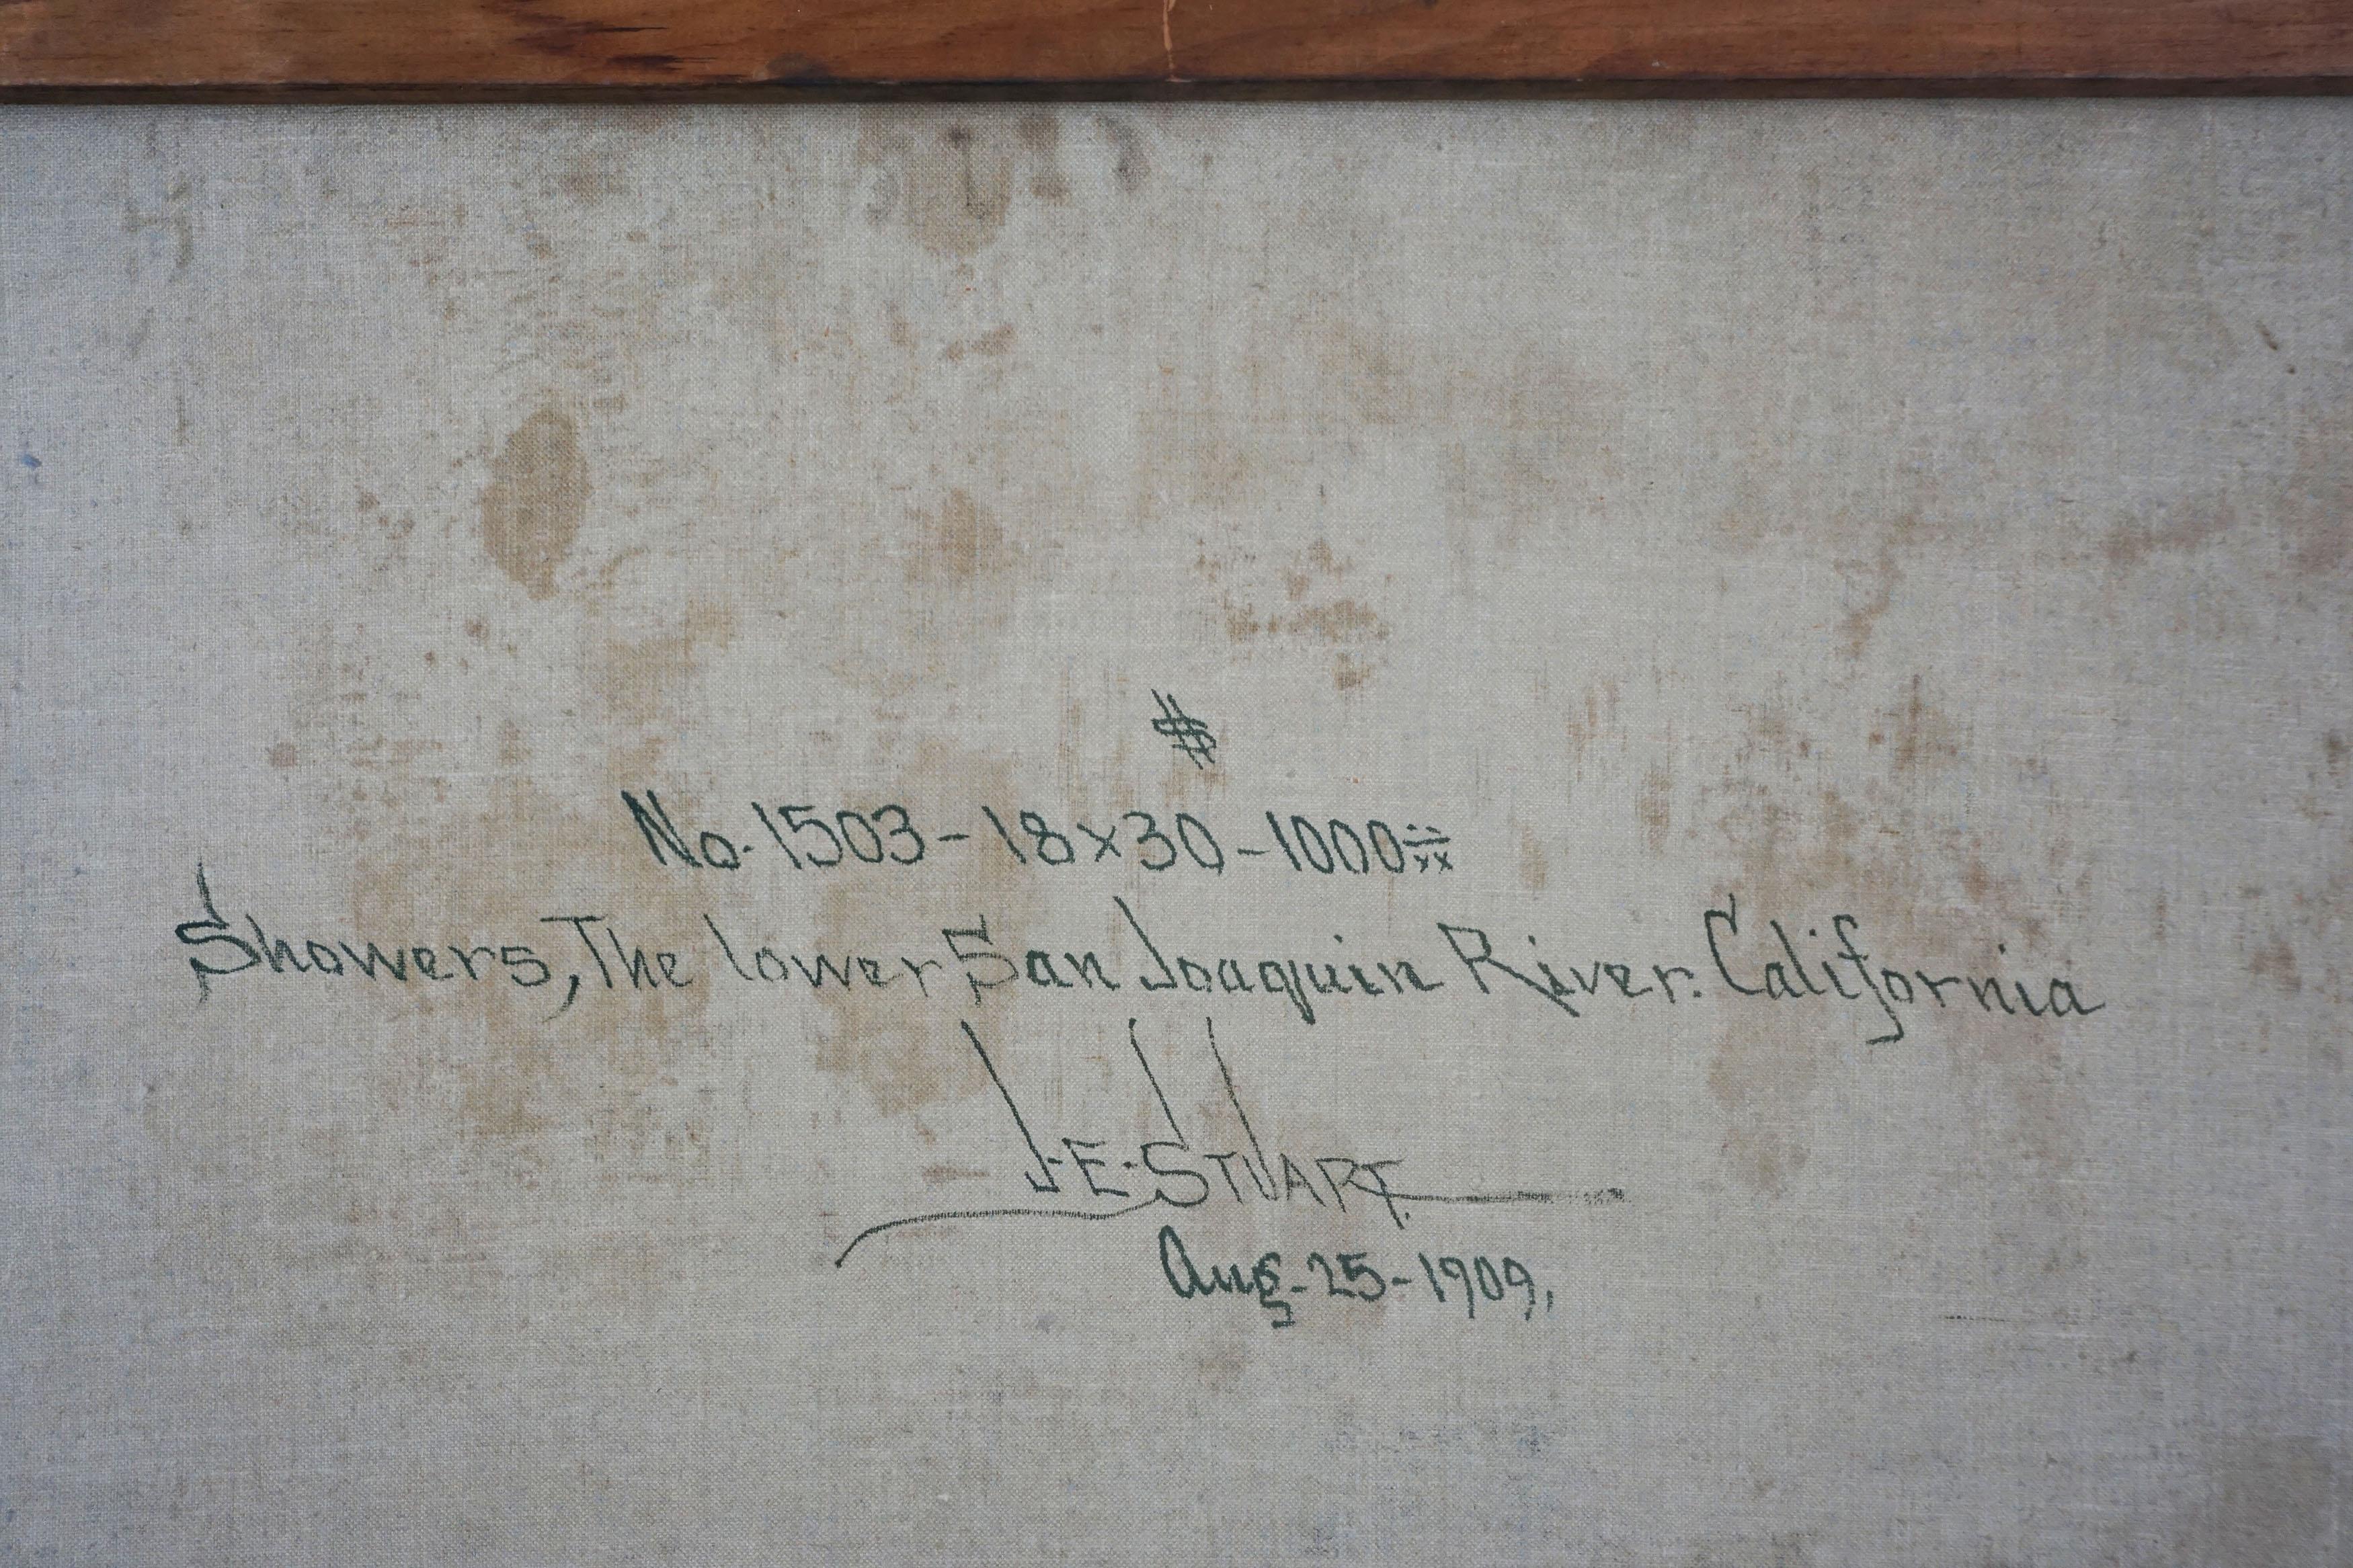 $
No. 1503 - 18 x 30 - 1000 xx
Showers, The lower San Joaquin River. California
J. E. STUART.
Aug - 25 - 1909,